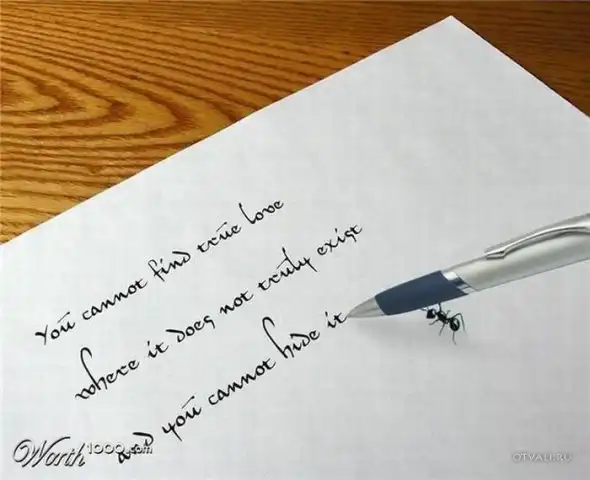 You cannot find true love
where it does not truly exist
and you cannot hide it
Worth1000.com
OTVALI.RU